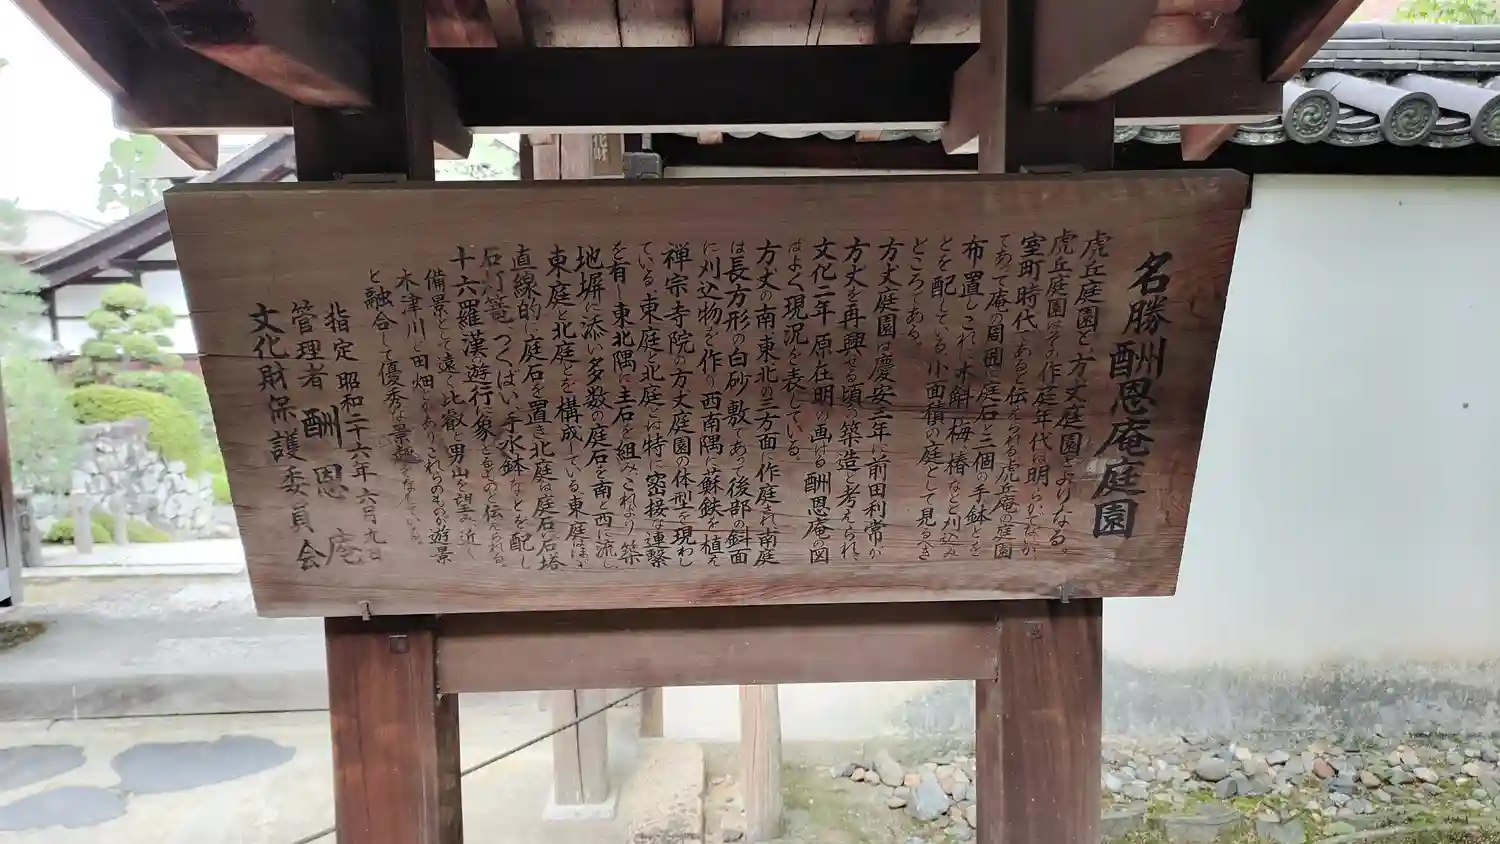 名勝 酬恩庵庭園
虎丘庭園と方丈庭園とよりなる。
虎丘庭園はその作庭年代は明らかでないが
室町時代であると伝えられる虎丘庵の庭園
であって庵の周囲に庭石と二個の手鉢とを
布置し、これに氷餅、梅、椿などと刈込み
とを配している、小面積の庭として見るべき
ところである
方丈庭園は慶安三年に前田利常が
方丈を再興せる頃の築造と考えられ、
文化二年原在明の画ける酬恩庵の図
はよく現況を表している。
方丈の南、東、北の三方面に作庭され南庭
は長方形の白砂敷であって後部の斜面
に刈込物を作り西南隅に蘇鉄を植え
禅宗寺院の方丈庭園の体型を現わし
ている、東庭と北庭とは特に密接な連繋
を有し東北隅に主石を組み、これより築
地塀に添い多数の庭石を南と西に流し
東庭と北庭とを構成している、東庭はほぼ
直線的に庭石を置き北庭は庭石、石塔
石灯篭、つくばい、手水鉢などを配し
十六羅漢の遊行に象どるものと伝えられる。
備景として遠く比叡と男山を望み近く
木津川と田畑とあり、これらのものが遊景
と融合して優秀な景趣をなしている。
指定 昭和二十六年六月九日
管理者 酬恩庵
文化財保護委員会
化財